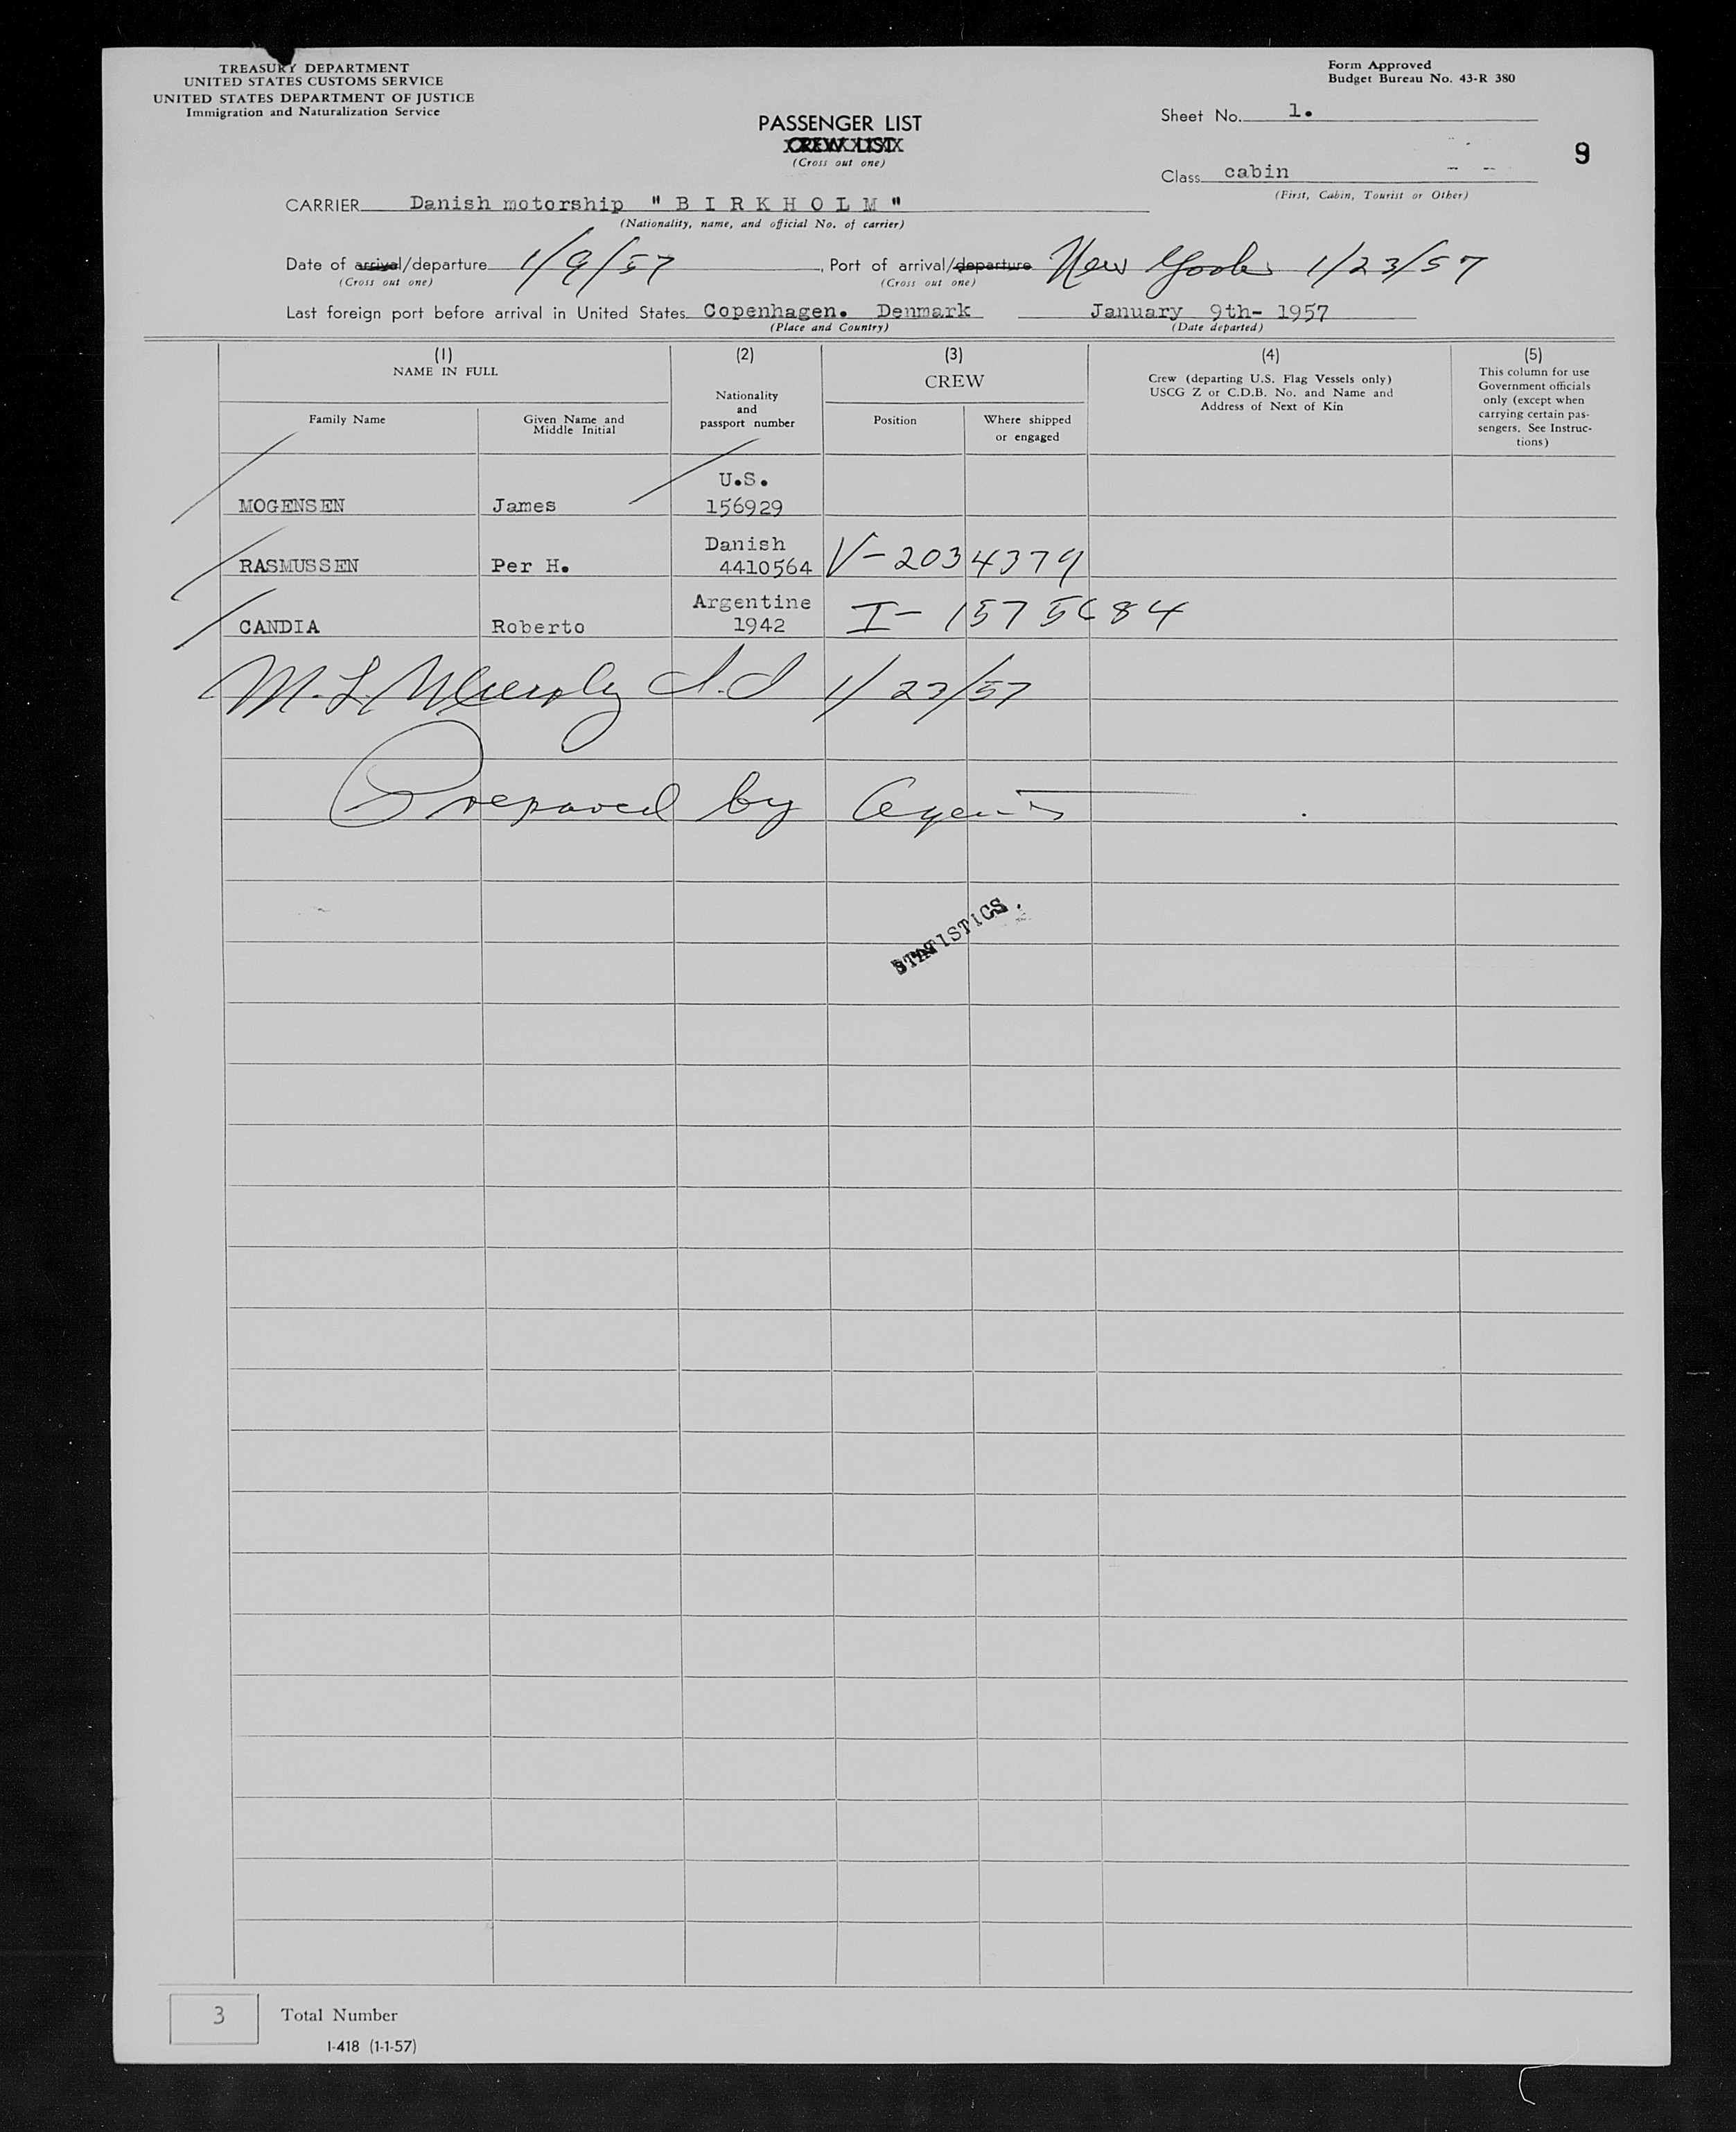 TREASURY DEPARTMENT
UNITED STATES CUSTOMS SERVICE
UNITED STATES DEPARTMENT OF JUSTICE
Immigration and Naturalization Service
Form Approved
Budget Bureau No. 43-R 380
PASSENGER LIST
CREW LIST
(Cross out one)
Sheet No. 1.
9
Class cabin
(First, Cabin, Tourist or Other)
CARRIER Danish motorship "BIRKHOLM"
(Nationality, name, and official No. of carrier)
Date of arrival/departure 1/9/57, Port of arrival/departure New York 1/23/57
(Cross out one) (Cross out one)
Last foreign port before arrival in United States Copenhagen. Denmark January 9th- 1957
(Place and Country) (Date departed)
(1) (2) (3) (4) (5)
NAME IN FULL
Family Name
Given Name and Middle Initial
Nationality and passport number
CREW
Position
Where shipped or engaged
Crew (departing U.S. Flag Vessels only)
USCG Z or C.D.B. No. and Name and
Address of Next of Kin
This column for use
Government officials
only (except when
carrying certain pas-
sengers. See Instruc-
tions)
U.S.
MOGENSEN James 156929
Danish
RASMUSSEN Per H. 4410564 V-2034379
Argentine
CANDIA Roberto 1942 I-
M. L. 1/23/57
Prepared by Agents
STATISTICS.
3 Total Number
I-418 (1-1-57)